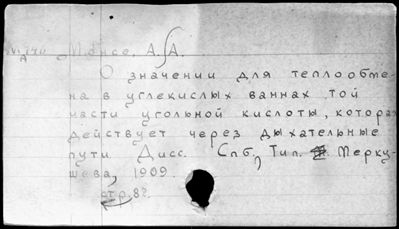 А. А.
О значении для теплообме-
на в углекислых ваннах той
части угольной кислоты, которая
действует через дыхательные
пути Дисс. Спб, Тип. Мерку-
шева, 1909.
стр. 82.